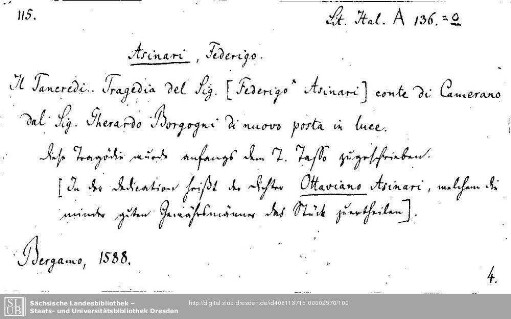 115.
Lit. Ital. A 136.
Asinari, Federigo.
Il Tancredi. Tragedia del Sig. [Federigo Asinari] conte di Camerano
dal Sig. Gherardo Borgogni di nuovo posta in luce.
Diese Tragödie wurde anfangs dem T. Tasso zugeschrieben.
[In der dedication heißt der Dichter Ottaviano Asinari, welchem die
minder guten Gewährsmänner das Stück zuertheilen].
Bergamo, 1588.
4.
SLUB
Sächsische Landesbibliothek –
Staats- und Universitätsbibliothek Dresden